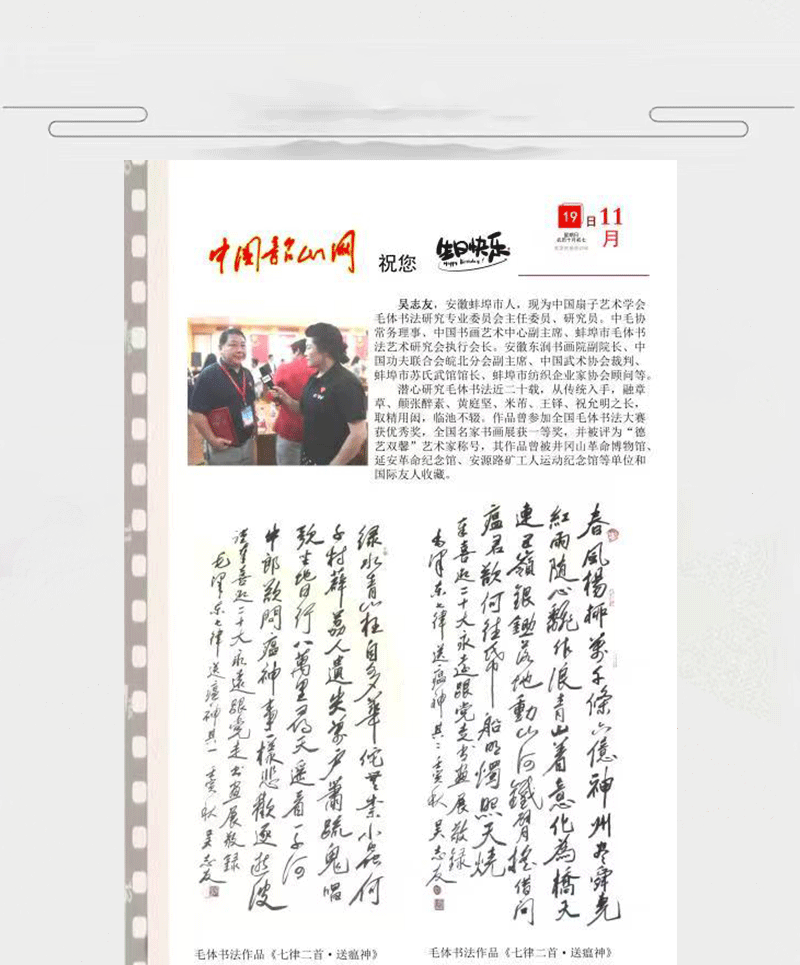 中国韶山网
祝您
生日快乐
Happy Birthday!
19
日
11
月
星期日
农历十月初七
吴志友，安徽蚌埠市人，现为中国扇子艺术学会
毛体书法研究专业委员会主任委员、研究员。中毛协
常务理事、中国书画艺术中心副主席、蚌埠市毛体书
法艺术研究会执行会长。安徽东润书画院副院长、中
国功夫联合会皖北分会副主席、中国武术协会裁判、
蚌埠市苏氏武馆馆长、蚌埠市纺织企业家协会顾问等。
潜心研究毛体书法近二十载，从传统入手，融章
草、颠张醉素、黄庭坚、米芾、王铎、祝允明之长，
取精用闳，临池不辍。作品曾参加全国毛体书法大赛
获优秀奖，全国名家书画展获一等奖，并被评为“德
艺双馨”艺术家称号，其作品曾被井冈山革命博物馆、
延安革命纪念馆、安源路矿工人运动纪念馆等单位和
国际友人收藏。
春風楊柳萬千條六億神州尽舜尧
紅雨随心翻作浪青山着意化為橋天
連五嶺銀鋤落地動山河鐵臂摇借問
瘟君欲何往纸船明燭照天燒
喜迎二十大永遠跟党走书画展敬録
毛澤东七律送瘟神其二 壬寅秋 吴志友
绿水青山枉自多華佗無奈小虫何
千村薜荔人遺失萬户蕭疏鬼唱
歌坐地日行八萬里巡天遥看一千河
牛郎欲問瘟神事一樣悲歡逐逝波
喜迎二十大永遠跟党走书画展敬録
毛澤东七律送瘟神其一 壬寅秋 吴志友
毛体书法作品《七律二首·送瘟神》
毛体书法作品《七律二首·送瘟神》